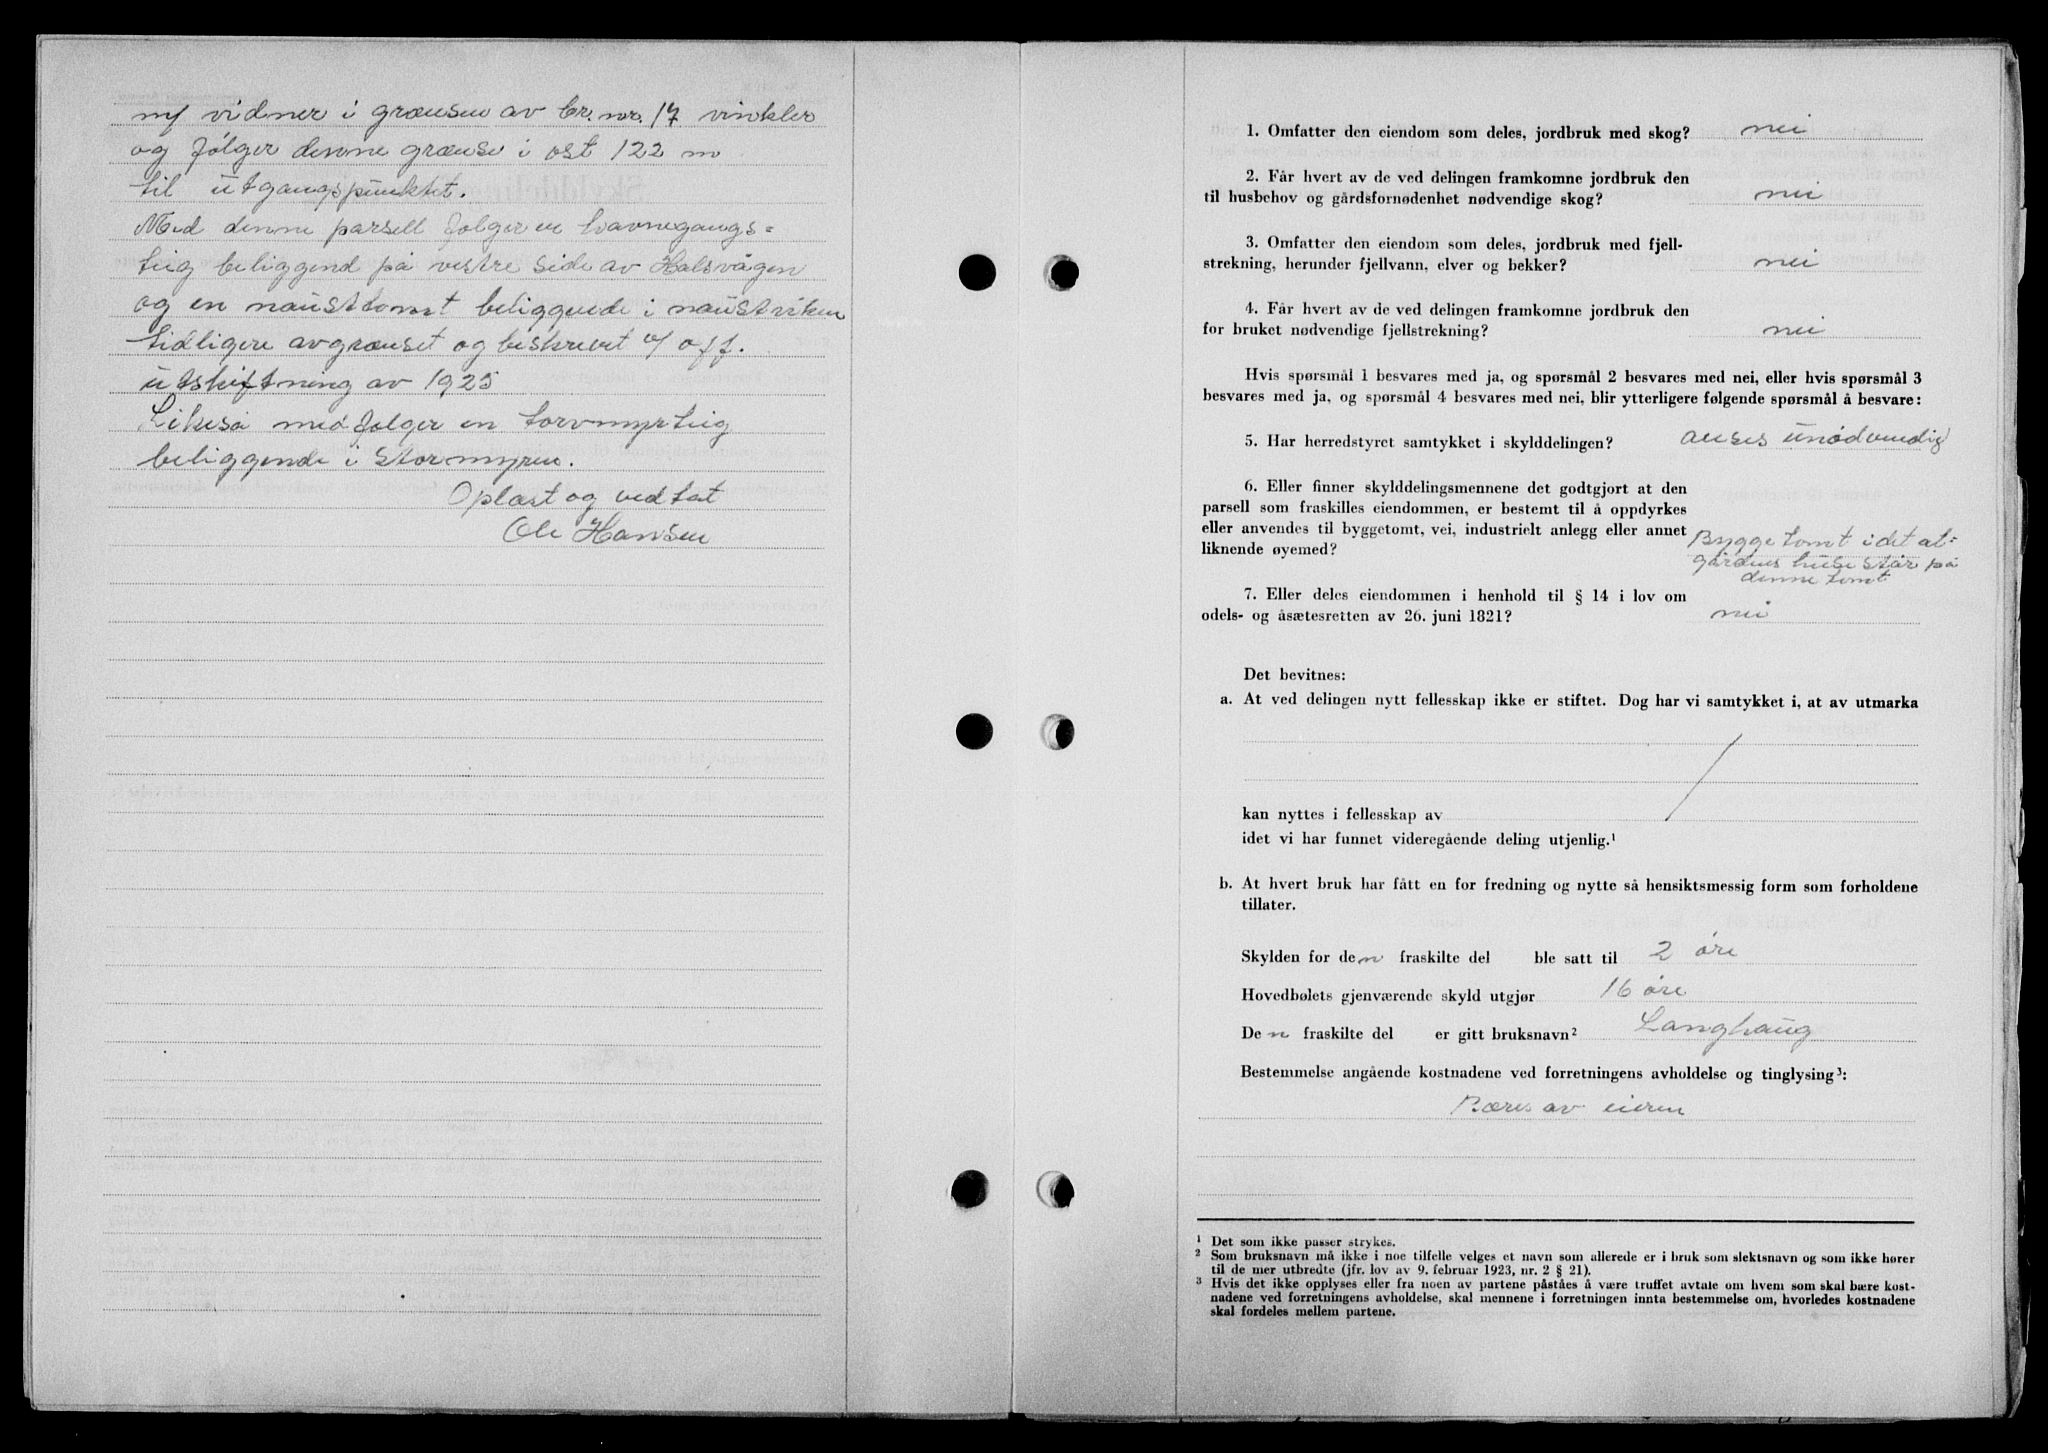 m/ vidner i grænsen av br. nr. 17 vinkler
og følger denne grænse i øst 122 m
til utgangspunktet.
Med denne parsell følger en havnegangs=
teig beliggend på vestre side av Halsvågen
og en nausttomt beliggende i naustviken
tidligere avgrænset og beskrevet v/ off.
utskiftning av 1925
Likeså medfølger en torvmyrteig
beliggende i Stormyren.
Oplæst og vedtat
Ole Hansen
1. Omfatter den eiendom som deles, jordbruk med skog? nei
2. Får hvert av de ved delingen framkomne jordbruk den
til husbehov og gårdsfornødenhet nødvendige skog? nei
3. Omfatter den eiendom som deles, jordbruk med fjell-
strekning, herunder fjellvann, elver og bekker? nei
4. Får hvert av de ved delingen framkomne jordbruk den
for bruket nødvendige fjellstrekning? nei
Hvis spørsmål 1 besvares med ja, og spørsmål 2 besvares med nei, eller hvis spørsmål 3
besvares med ja, og spørsmål 4 besvares med nei, blir ytterligere følgende spørsmål å besvare:
5. Har herredstyret samtykket i skylddelingen? anses unødvendig
6. Eller finner skylddelingsmennene det godtgjort at den
parsell som fraskilles eiendommen, er bestemt til å oppdyrkes
eller anvendes til byggetomt, vei, industrielt anlegg eller annet
liknende øyemed? Byggetomt idet at=
gårdens huse står på
denne tomt
7. Eller deles eiendommen i henhold til § 14 i lov om
odels- og åsætesretten av 26. juni 1821? nei
Det bevitnes:
a. At ved delingen nytt fellesskap ikke er stiftet. Dog har vi samtykket i, at av utmarka
kan nyttes i fellesskap av
idet vi har funnet videregående deling utjenlig.¹
b. At hvert bruk har fått en for fredning og nytte så hensiktsmessig form som forholdene
tillater.
Skylden for den fraskilte del ble satt til 2 øre
Hovedbølets gjenværende skyld utgjør 16 øre
Den fraskilte del er gitt bruksnavn² Langhaug
Bestemmelse angående kostnadene ved forretningens avholdelse og tinglysing³:
Bæres av eieren
¹ Det som ikke passer strykes.
² Som bruksnavn må ikke i noe tilfelle velges et navn som allerede er i bruk som slektsnavn og som ikke hører
til de mer utbredte (jfr. lov av 9. februar 1923, nr. 2 § 21).
³ Hvis det ikke opplyses eller fra noen av partene påståes å være truffet avtale om hvem som skal bære kost-
nadene ved forretningens avholdelse, skal mennene i forretningen innta bestemmelse om, hvorledes kostnadene
skal fordeles mellem partene.